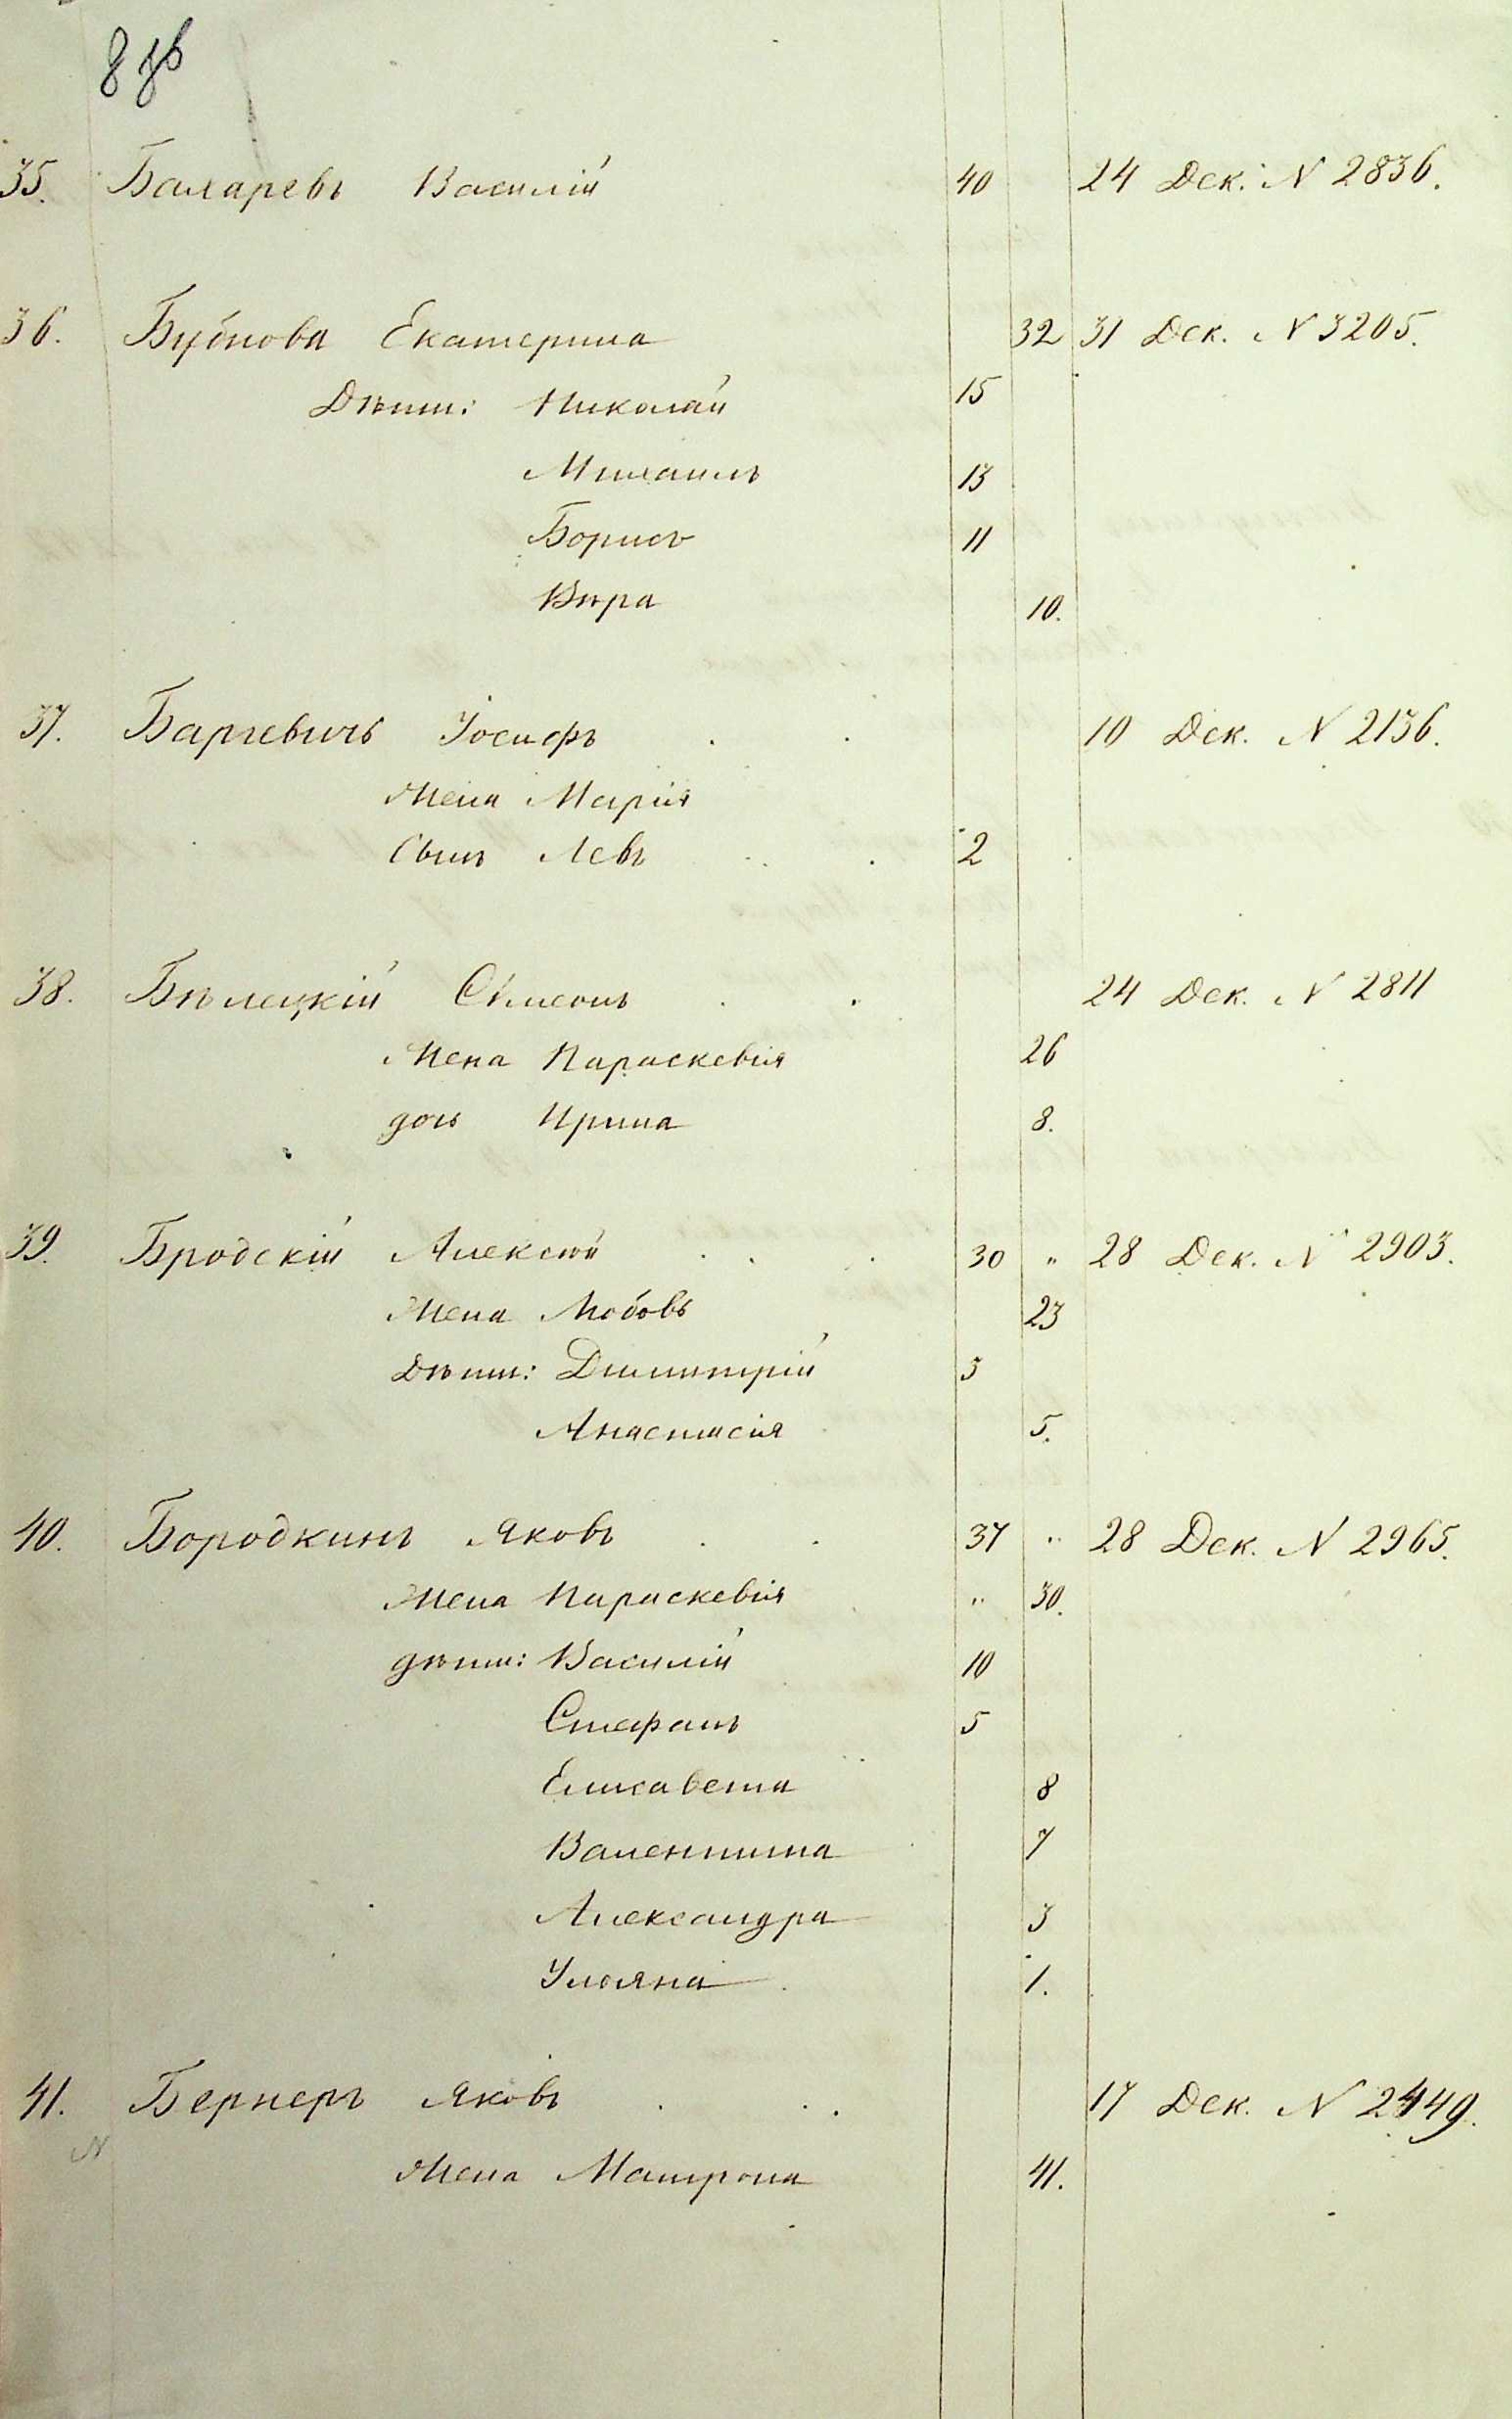 35. Бахаревъ Василій 40 24 Дек. N 2836.
36. Бубнова Екатерина 32 31 Дек. N 3205.
Дѣти: Николай 15
Михаилъ 13
Борисъ 11
Вѣра 10.
37. Баргевичъ Іосифъ 10 Дек. N 2136.
Жена Марія
Сынъ Левъ 2
38. Бѣлецкій Сѵмеонъ 24 Дек. N 2811
Жена Параскевія 26
дочь Ирина 8.
39. Бродскій Алексѣй 30 " 28 Дек. N 2903.
Жена Любовь 23
Дѣти: Димитрій 3
Анастасія 5.
40. Бородкинъ Яковъ 37 " 28 Дек. N 2965.
Жена Параскевія " 30.
дѣти: Василій 10
Стефанъ 5
Елисавета 8
Валентина 7
Александра 3
Ульяна 1.
41. Бернеръ Яковъ 17 Дек. N 2449.
N
Жена Матрона 41.